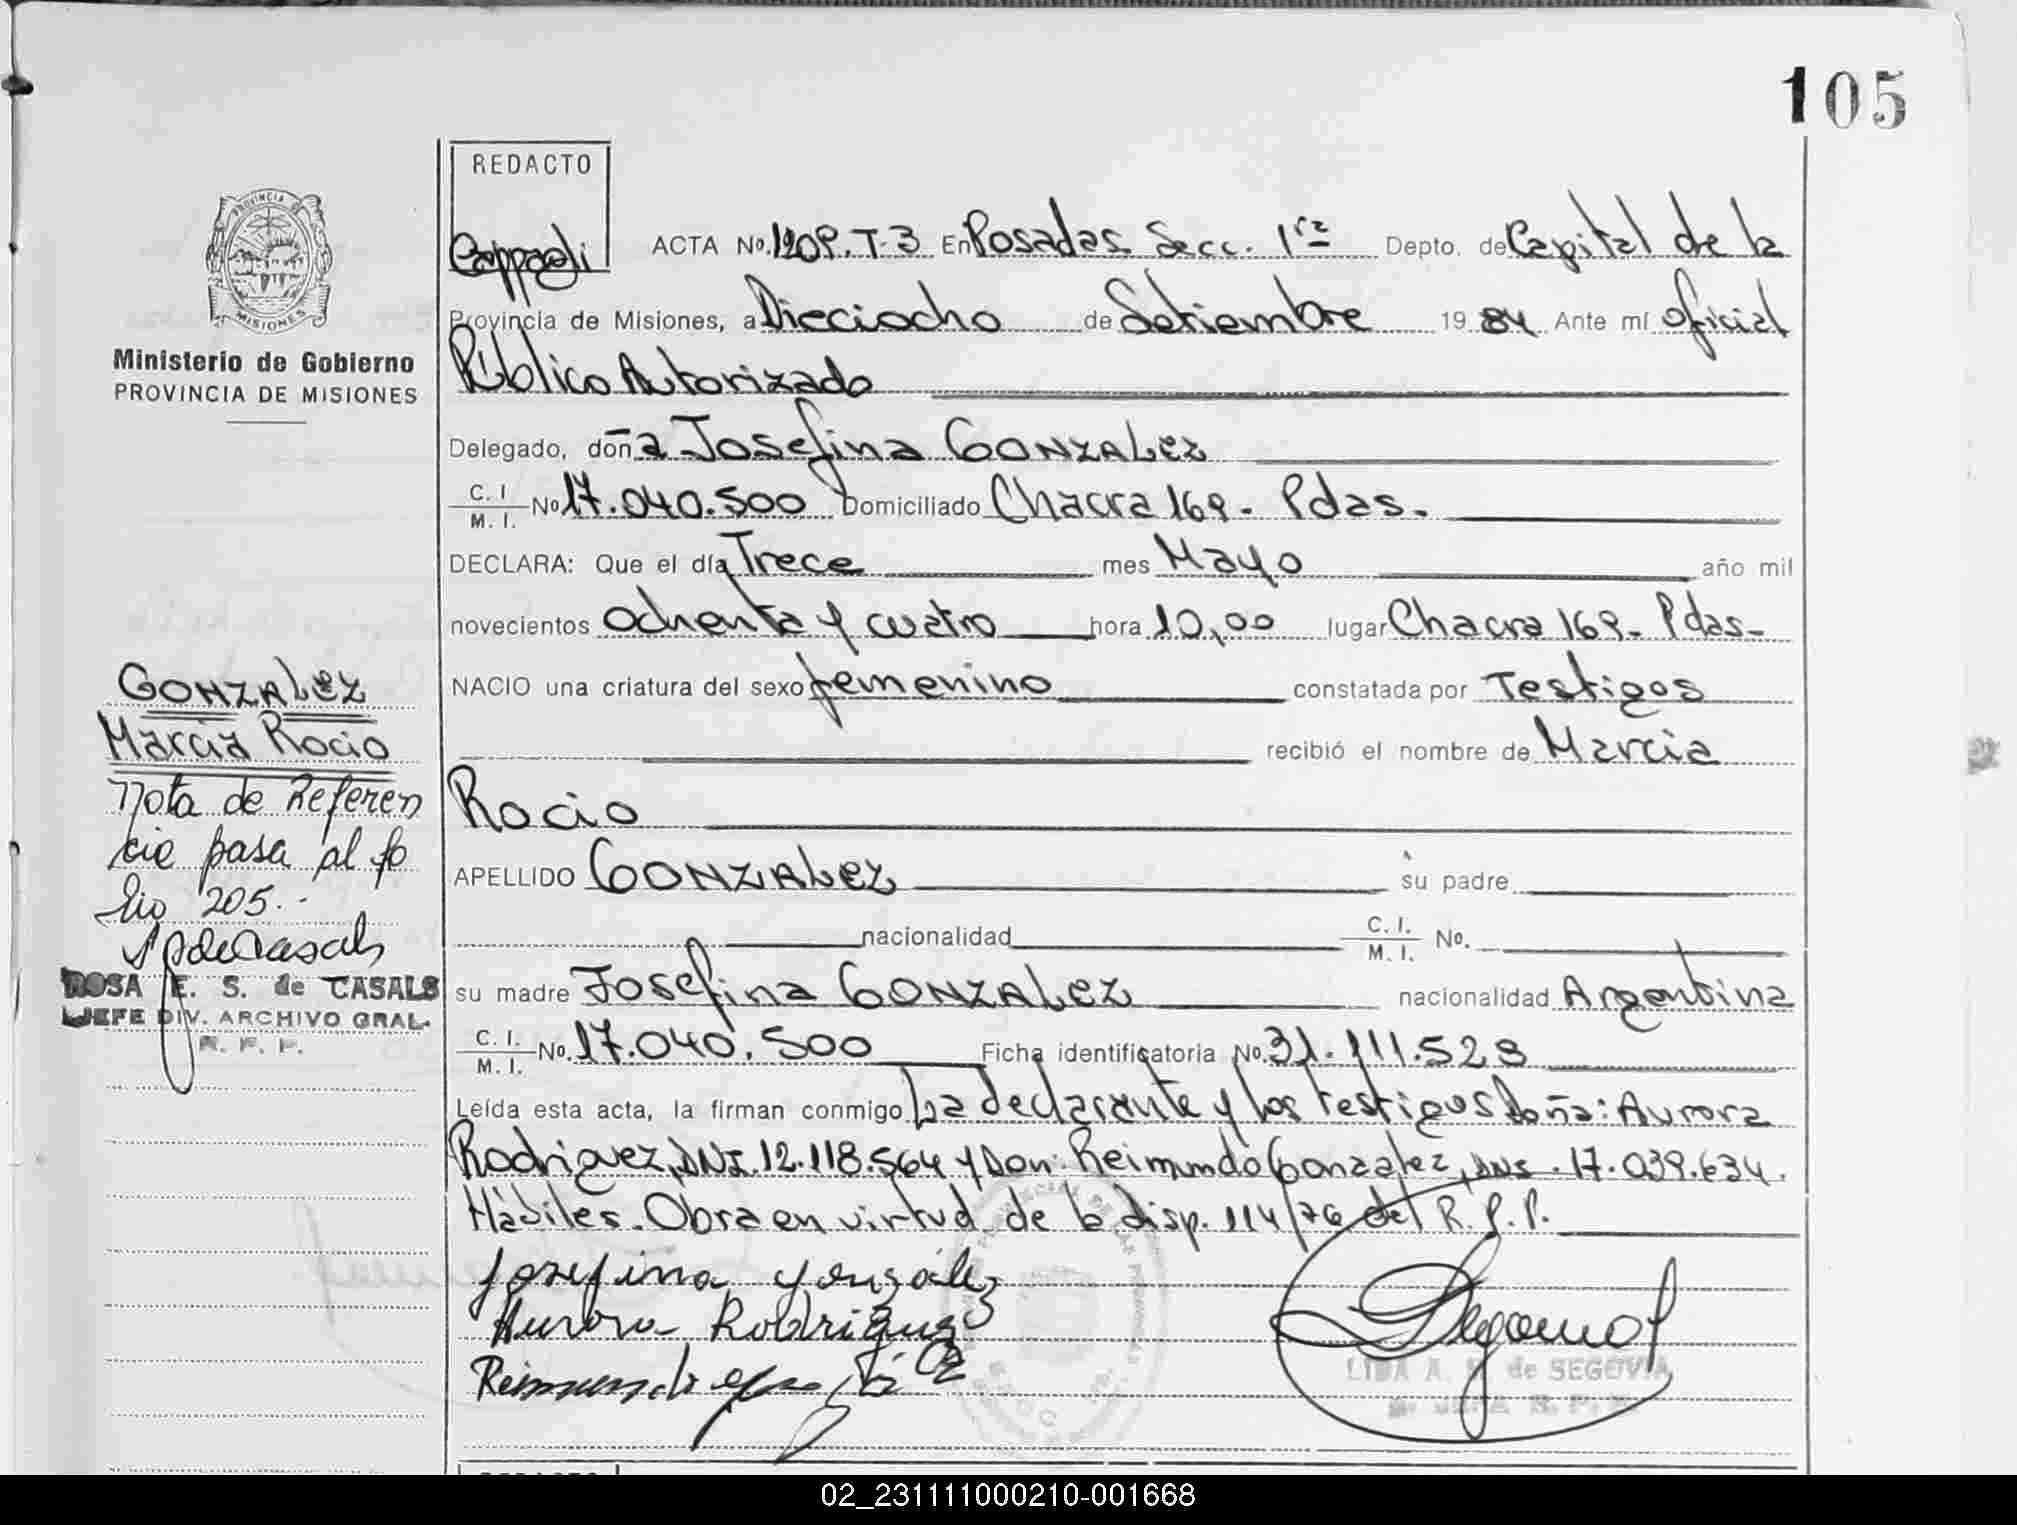 105
REDACTO
PROVINCIA DE
MISIONES
Ministerio de Gobierno
PROVINCIA DE MISIONES
ACTA No. 1209. T-3 En Posadas Secc. 1ra Depto. de Capital de la
Provincia de Misiones, a Dieciocho de Setiembre 19 84 Ante mí oficial
Público Autorizado
Delegado, doña Josefina GONZALEZ
C. I. / M. I. No 17.040.500 Domiciliado Chacra 169 - Pdas.
DECLARA: Que el día Trece mes Mayo año mil
novecientos ochenta y cuatro hora 10,00 lugar Chacra 169 - Pdas-
NACIO una criatura del sexo femenino constatada por Testigos
recibió el nombre de Marcia
Rocio
APELLIDO GONZALEZ su padre
nacionalidad C. I. / M. I. No.
su madre Josefina GONZALEZ nacionalidad Argentina
C. I. / M. I. No. 17.040.500 Ficha identificatoria No. 31.111.528
Leída esta acta, la firman conmigo La declarante y los testigos Doña: Aurora
Rodriguez, DNI. 12.118.564 y Don: Reimundo Gonzalez, DNI. 17.039.634.
Hàbiles. Obra en virtud de la disp. 114/76 del R.P.P.
Josefina gonzález
Aurora Rodriguez
Reimundo
LIDA A. de SEGOVIA
GONZALEZ
Marcia Rocio
Nota de Referen
cia pasa al fo
lio 205..
ROSA E. S. de CASALS
JEFE DIV. ARCHIVO GRAL.
R. P. P.
REDACTO
02_231111000210-001668